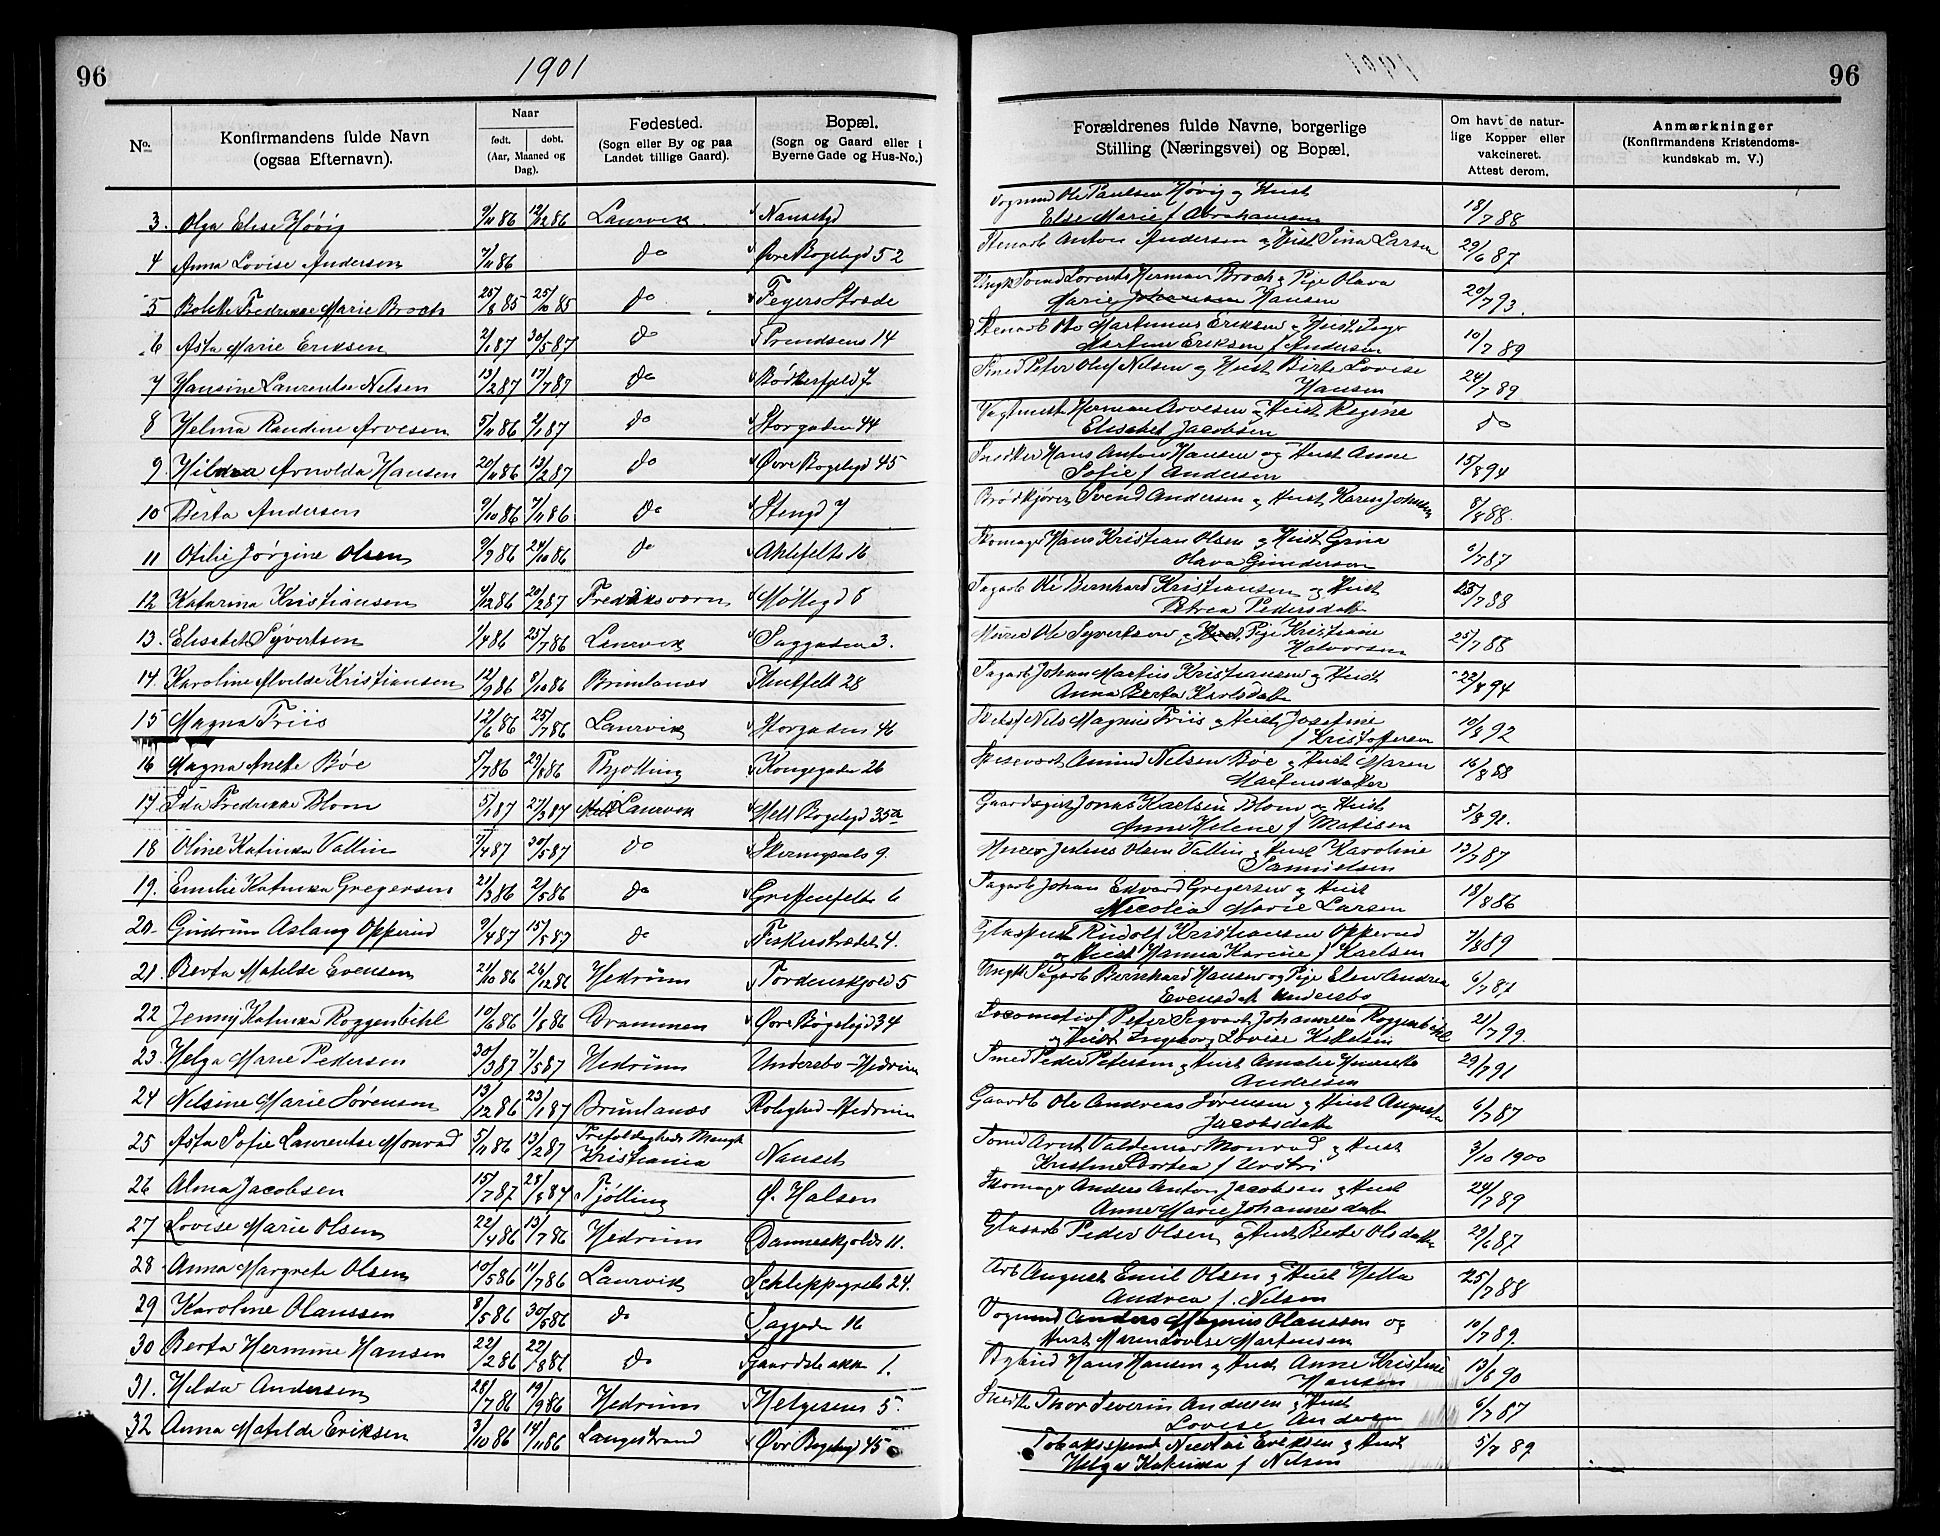 96
1901
No.
Konfirmandens fulde Navn
(ogsaa Efternavn).
Naar
født. døbt.
(Aar, Maaned og
Dag).
Fødested.
(Sogn eller By og paa
Landet tillige Gaard).
Bopæl.
(Sogn og Gaard eller i
Byerne Gade og Hus-No.)
3. Olga Elise Høvig 9/11 86 12/12 86 Laurvik Nansetgd
4 Anna Lovise Anderson 7/11 86 do Øvre Bøgeligd 52
5 Bolette Fredrikke Marie Broch 25/8 85 25/10 85 do Feyers Stræde
6 Asta Marie Eriksen 2/1 87 30/5 87 do Frendsens 14
7 Hansine Laurentse Nilsen 13/2 87 17/7 87 do Bødkerfjeld 7
8 Helma Randine Arvesen 5/11 86 2/1 87 do Storgaden 44
9. Hilda Arnolda Hansen 20/11 86 13/2 87 do Øvre Bøgeligd 45
10 Berta Andersen 9/10 86 7/11 86 do Stengd 7
11 Otilie Jørgine Olsen 9/9 86 24/10 86 do Ahlefelts 16
12 Katarina Kristiansen 4/12 86 20/2 87 Fredriksværn Møllegd 8
13. Elisabet Syvertsen 1/4 86 25/7 86 Laurvik Saggaden 3.
14. Karoline Alvilde Kristiansen 12/9 86 8/10 86 Brunlanæs Huitfelt 28
15 Magna Friis 12/6 86 25/7 86 Laurvik Storgaden 46
16 Magna Anette Bøe 5/7 86 29/8 86 Tjølling Kongegaden 26
17. Ida Fredrikke Blom 5/1 87 27/3 87 Laurvik Mell Bøgeligd 35a
18 Oline Katinka Vallin 7/4 87 30/5 87 do 9.
19. Emilie Katinka Gregersen 21/3 86 2/5 86 do Griffenfelts 6
20. Gudrun Aslaug Opperud 9/4 87 15/5 87 do Fiskerstrædet 4.
21. Berta Matilde Evensen 21/10 86 26/12 86 Hedrum Tordenskjold 5
22 Jenny Katinka Roggenbihl 10/6 86 1/8 86 Drammen Øvre Bøgeligd 34
23. Helga Marie Pedersen 30/3 87 7/5 87 Hedrum Undersbo-Hedrum
24 Nilsine Marie Sørensen 13/12 86 23/1 87 Brunlanæs Rolighed-Hedrum
25 Asta Sofie Laurentse Monrad 5/11 86 13/2 87 Trefoldigheds Mengh
Kristiania Nanset
26 Alma Jacobsen 15/7 87 28/8 87 Tjølling Ø. Halsen
27. Lovise Marie Olsen 22/4 86 13/7 86 Hedrum Danneskjolds 11.
28. Anna Margrete Olsen 10/5 86 11/7 86 Laurvik Schleppegrels 24.
29 Karoline Olaussen 8/5 86 30/5 86 do Saggaden 16
30 Berta Hermine Hansen 22/2 86 22/8 86 do Gaardsbakk 1.
31. Hilda Andersen 28/7 86 19/9 86 Hedrum Helgesens 5.
32 Anna Matilde Eriksen 3/10 86 14/11 86 Langestrand Øvr Bøgeligd 45
1901
96
Forældrenes fulde Navne, borgerlige
Stilling (Næringsvei) og Bopæl.
Om havt de natur-
lige Kopper eller
vakcineret.
Attest derom.
Anmærkninger
(Konfirmandens Kristendoms-
kundskab m. V.)
Vogmnd Ole Paulsen Høvig og Hust
Else Marie f Abrahamsen 18/7 88
Stenarb Anton Anderson og Hust Tina Larsen 29/6 87
Ungk Sømd Lorents Herman Broch og Pige Olava
Marie Hansen 20/7 93.
Stenarb Martinius Eriksen og Hust Inge
Martine Eriksen f Andersen 10/7 89
Smed Peter Oluf Nilsen og Hust Birte Lovise
Hansen 24/7 89
Vagtmest Herman Arvesen og Hust Regine
Elisabet Jacobsen do
Snedker Hans Anton Hansen og Hust Anne
Sofie f Andersen 15/8 94
Brødkjører Svend Andersen og Hust Karen Johnsen 8/8 88.
Skomager Hans Kristian Olsen og Hust Grina
Olava Gunderson 6/7 87
Sagarb Ole Bernhard Kristiansen og Hust
Petrea Pedersdatt 23/7 88
Murer Ole Syvertsen og Pige Kristiane
Halvorsen 25/7 88
Sagarb Johan Martin Kristiansen og Hust
Anna Berta Karlsdatt 22/8 94
Nils Magnus Friis og Hust Josefine
f Kristoffersen 10/8 92
Spisevært Amund Nilsen Bøe og Hust Maren
Martinsdatter 16/8 88
Gaardsgut Jonas Karlsen Blom og Hust
Anne Helene f Matisen 5/8 91.
Murer Olsen Vallin og Hust Karoline
Samuelsen 13/7 87
Sagarb Johan Edvard Gregersen og Hust
Nicolia Marie Larsen 18/8 86
Glaspust Rudolf Kristiansen Opperud
og Hust Hanna Karine f Karlsen 7/8 89
Ungk Sagarb Bernhard Hansen og Pige Elen Andrea
Evensdat Undersbo 6/7 87
Locomotivf Peter Sigvart Johannesen Roggenbihl
og Hust Ingeborg Lovise Kittelsen 21/7 99.
Smed Peder Petersen og Hust Amalie Henriette
Andrisen 29/7 91
Gaardb Ole Andreas Sørensen og Hust Augusta
Jacobsdatt 6/7 87
Sømd Arnt Valdemar Monrad og Hust
Kristine Dortea f Urstri 3/10 1900
Skomager Anders Anton Jacobsen og Hust
Anne Marie Johannesdatt 24/7 89
Glasarb Peder Olsen og Hust Berte Olsdatter 29/6 87
Arb August Emil Olsen og Hust Hella
Andrea f. Nilsen 25/7 88
Vogmnd Anders Magnus Olaussen og
Hust Maren Lovise Martinsen 10/7 89.
Bybud Hans Hansen og Hust Anne Kristine
Hansen 13/6 90
Snedk Thor Severin Andersen og Hust
Lovise Andersen 6/7 87
Tobakspind Nicolai Eriksen og Hust
Helga Katrinka f Nilsen 5/7 89